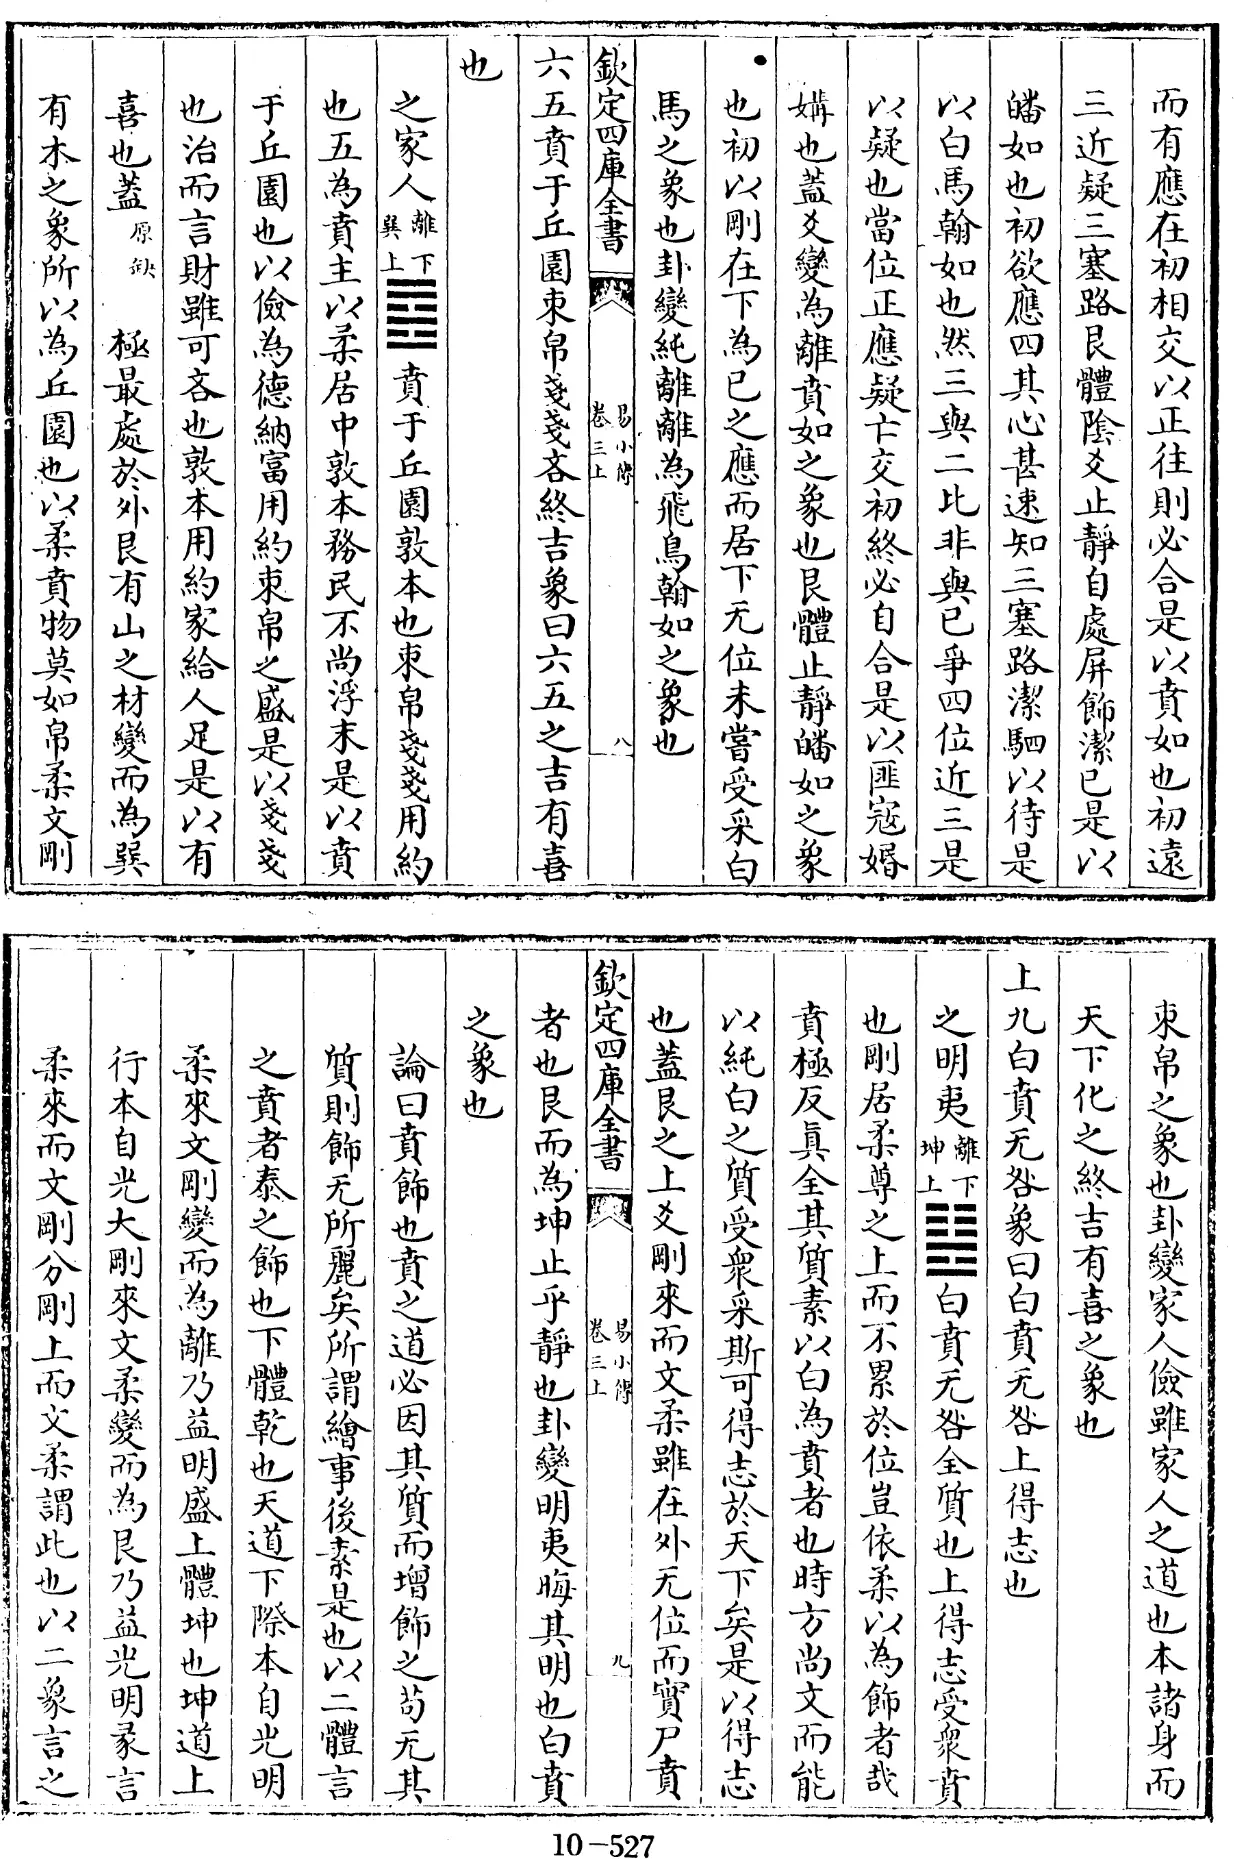 而有應在初相交以正往則必合是以賁如也初遠
三近疑三塞路艮體陰爻止靜自處屏飾潔已是以
皤如也初欲應四其心甚速知三塞路潔駟以待是
以白馬翰如也然三與二比非與已爭四位近三是
以疑也當位正應疑亡交初終必自合是以匪寇婚
媾也蓋爻變為離賁如之象也艮體止靜皤如之象
也初以剛在下為已之應而居下无位未嘗受采白
馬之象也卦變純離離為飛鳥翰如之象也
欽定四庫全書
易小傳
卷三上
八
六五賁于丘園束帛戔戔吝終吉象曰六五之吉有喜
也
之家人離下巽上䷤賁于丘園敦本也束帛戔戔用約
也五為賁主以柔居中敦本務民不尚浮末是以賁
于丘園也以儉為德納富用約束帛之盛是以戔戔
也治而言財雖可吝也敦本用約家給人足是以有
喜也蓋原缺 極最處於外艮有山之材變而為巽
有木之象所以為丘園也以柔賁物莫如帛柔文剛
束帛之象也卦變家人儉雖家人之道也本諸身而
天下化之終吉有喜之象也
上九白賁无咎象曰白賁无咎上得志也
之明夷離下坤上䷣白賁无咎全質也上得志受衆賁
也剛居柔尊之上而不累於位豈依柔以為飾者哉
賁極反眞全其質素以白為賁者也時方尚文而能
以純白之質受衆采斯可得志於天下矣是以得志
也蓋艮之上爻剛來而文柔雖在外无位而實尸賁
欽定四庫全書
易小傳
卷三上
九
者也艮而為坤止乎靜也卦變明夷晦其明也白賁
之象也
論曰賁飾也賁之道必因其質而增飾之苟无其
質則飾无所麗矣所謂繪事後素是也以二體言
之賁者泰之飾也下體乾也天道下際本自光明
柔來文剛變而為離乃益明盛上體坤也坤道上
行本自光大剛來文柔變而為艮乃益光明彖言
柔來而文剛分剛上而文柔謂此也以二象言之
10-527